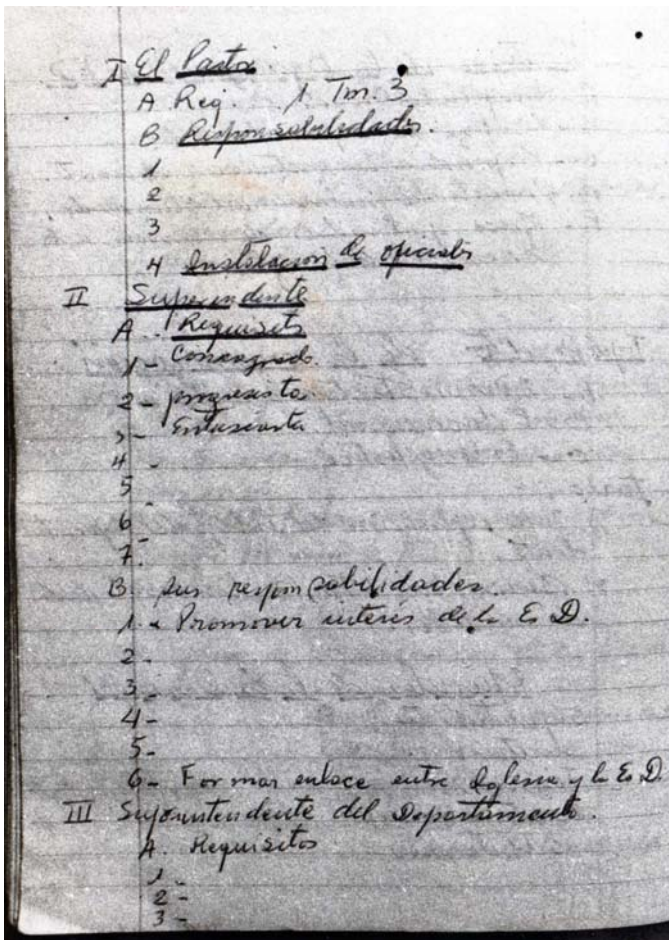 I El Pastor
A Req. 1 Tm. 3
B Responsabilidades.
1
2
3
4 Instalacion de oficiales
II Superindente
A. Requisito
1- Consagrado.
2- progresista.
3- Entusiasta
4-
5
6
7.
B. sus responsabilidades.
1.- Promover interés de la Es D.
2-
3-
4-
5-
6- Formar enlace entre Iglesia y la Es D.
III Superintendente del Departamento.
A. Requisitos
1-
2-
3-